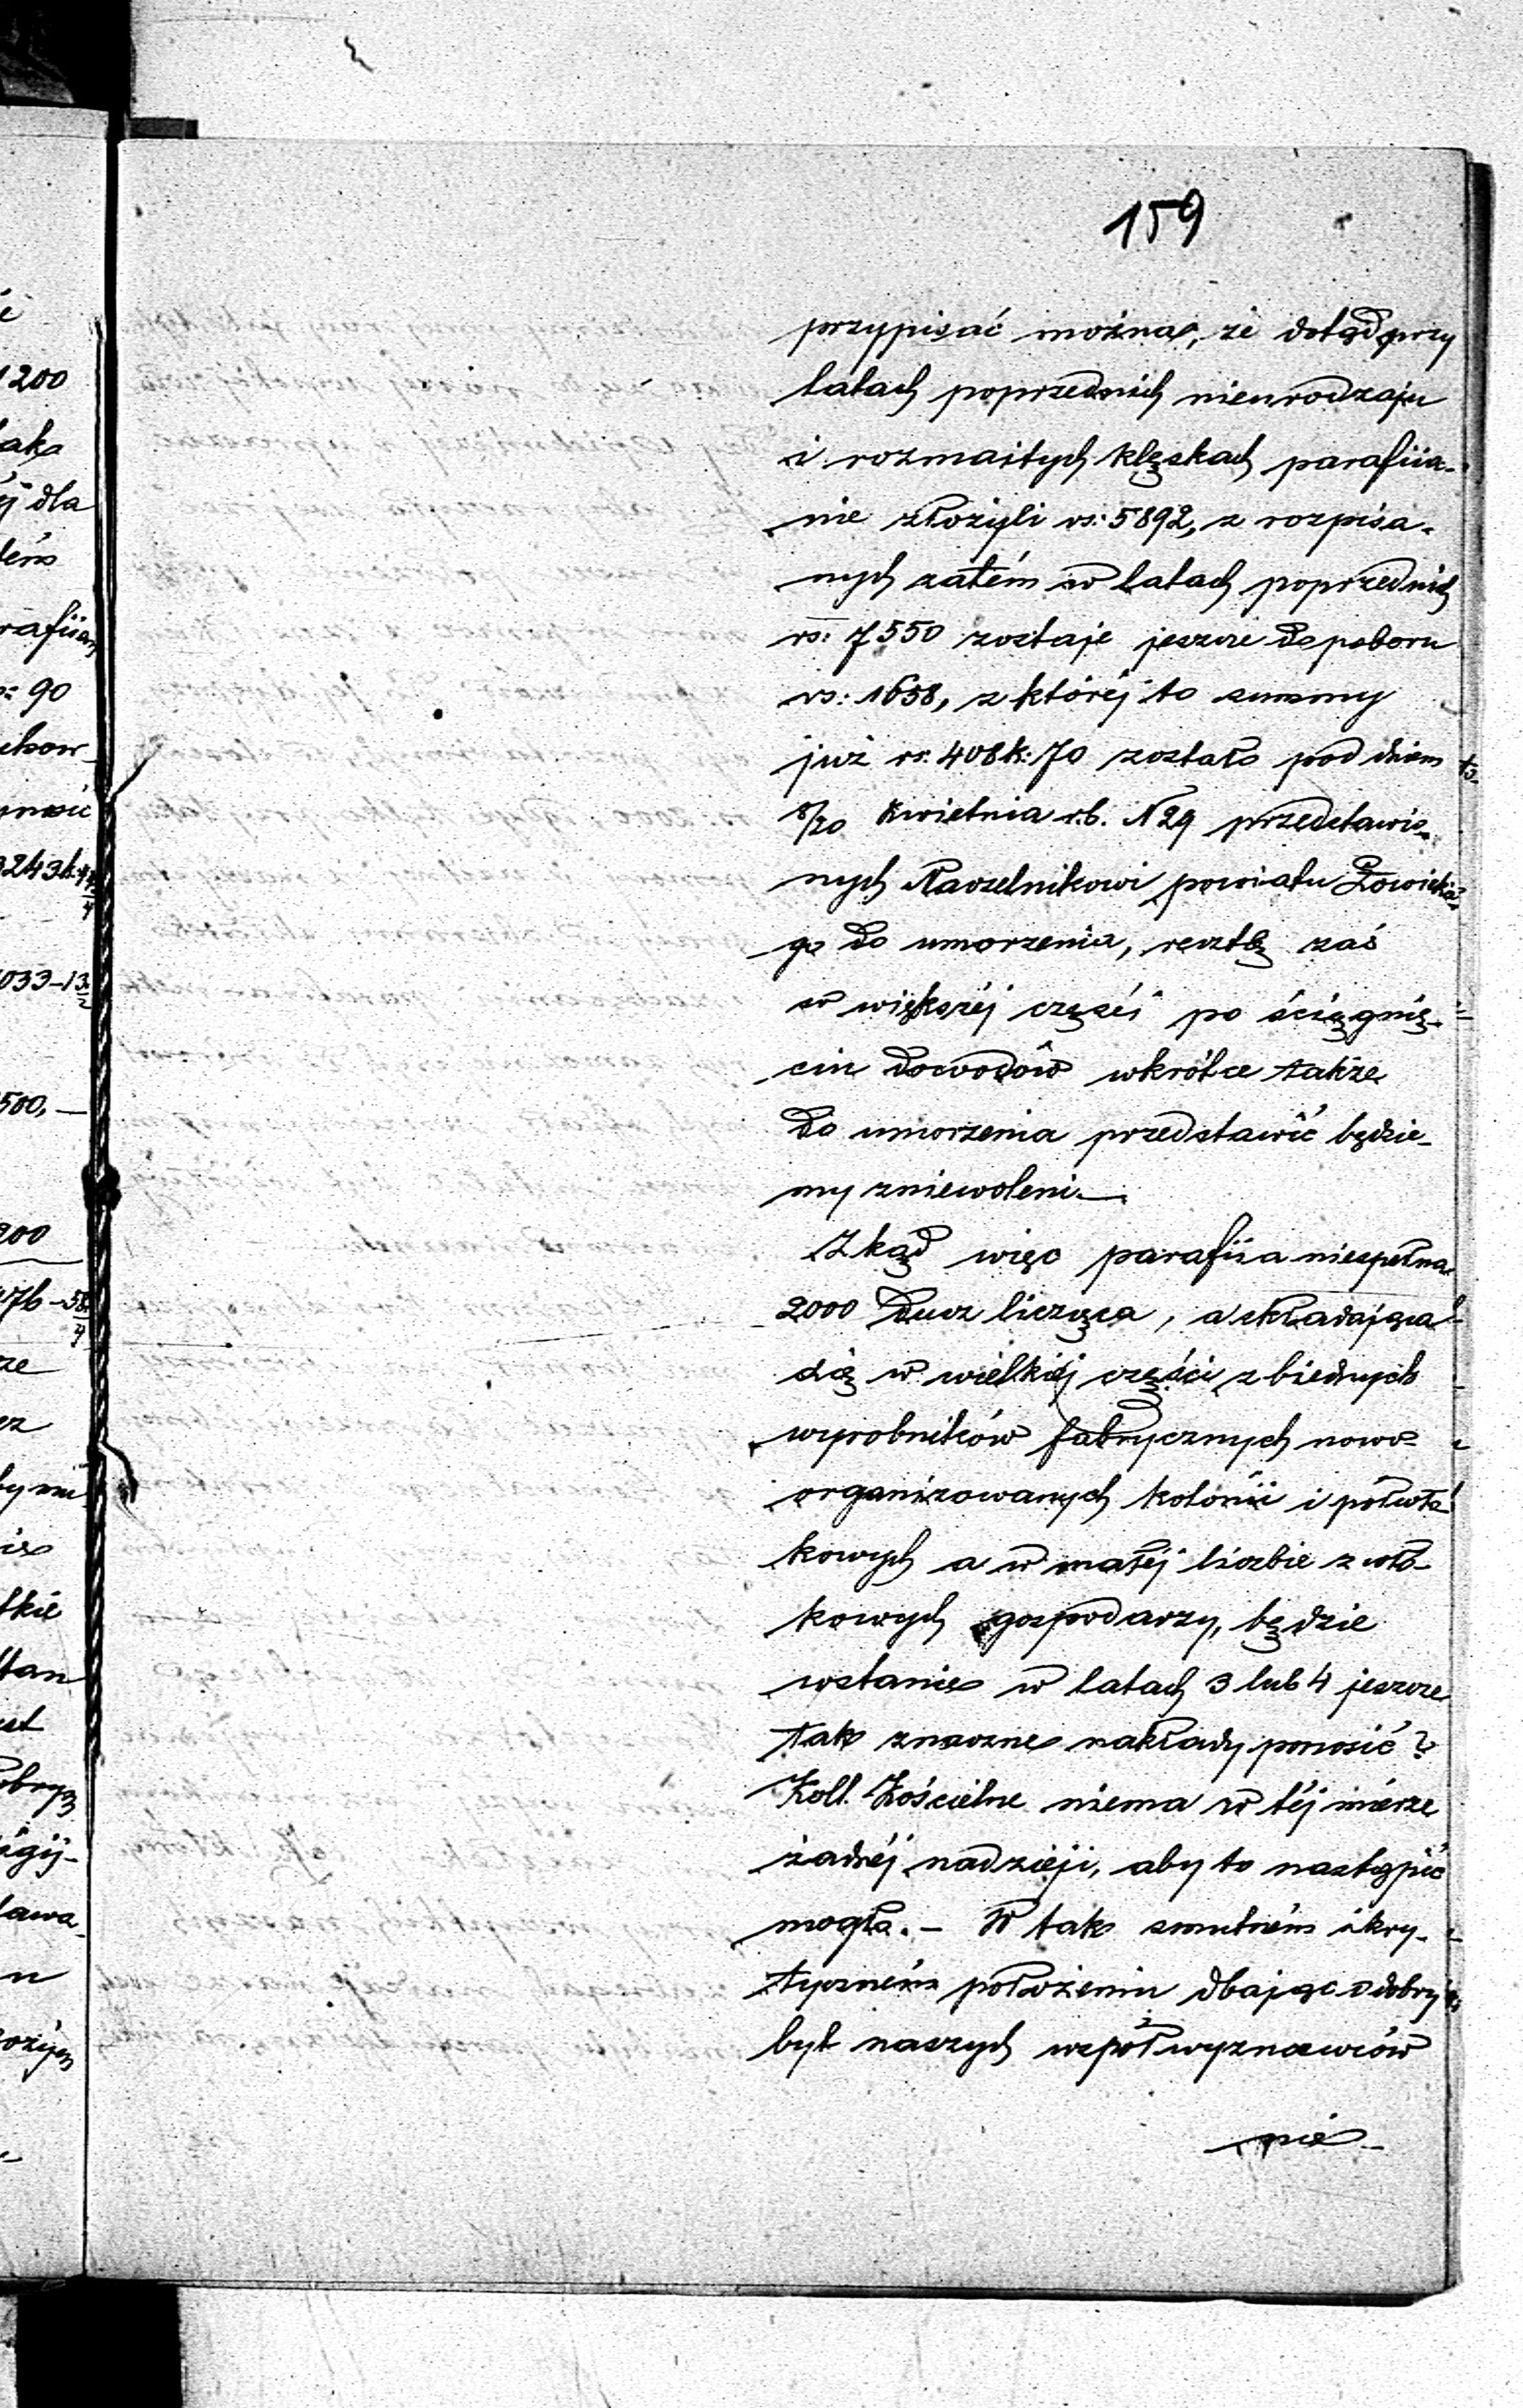 159
przypisać można, że dotąd przy
latach poprzednich nieurodzaju
i rozmaitych klęskach parafiia-
nie złożyli rs: 5892, z rozpisa-
nych zatém w latach poprzednich
rs: 7550 zostaje jeszcze do poboru
rs: 1658, z któréj to summy
już rs. 408 k: 70 zostało pod dniem
8/20 Kwietnia r.b. N 29 przedstawio-
nych Naczelnikowi powiatu Łowickie-
go do umorzenia, resztę zaś
w większéj części po ściągnię-
ciu dowodów wkrótce także
do umorzenia przedstawić będzie-
my zniewoleni.—
Zkąd więc parafiia niespełna
2000 dusz licząca, a składająca
się w wielkiéj części z biednych
wyrobników fabrycznych nowo-
organizowanych kolonii i półwłó-
kowych a w małéj liczbie z włó-
kowych gospodarzy, będzie
wstanie w latach 3 lub 4 jeszcze
tak znaczne nakłady ponosić?
Koll. Kościelne niema w téj mierze
żadnéj nadzieji, aby to nastąpić
mogło. – W tak smutném i kry-
tyczném położeniu dbając o dobry
byt naszych współwyznawców
nie-
1200
tak
éj dla
rafiian
90
3243k
033-13
500,—
200
176-58